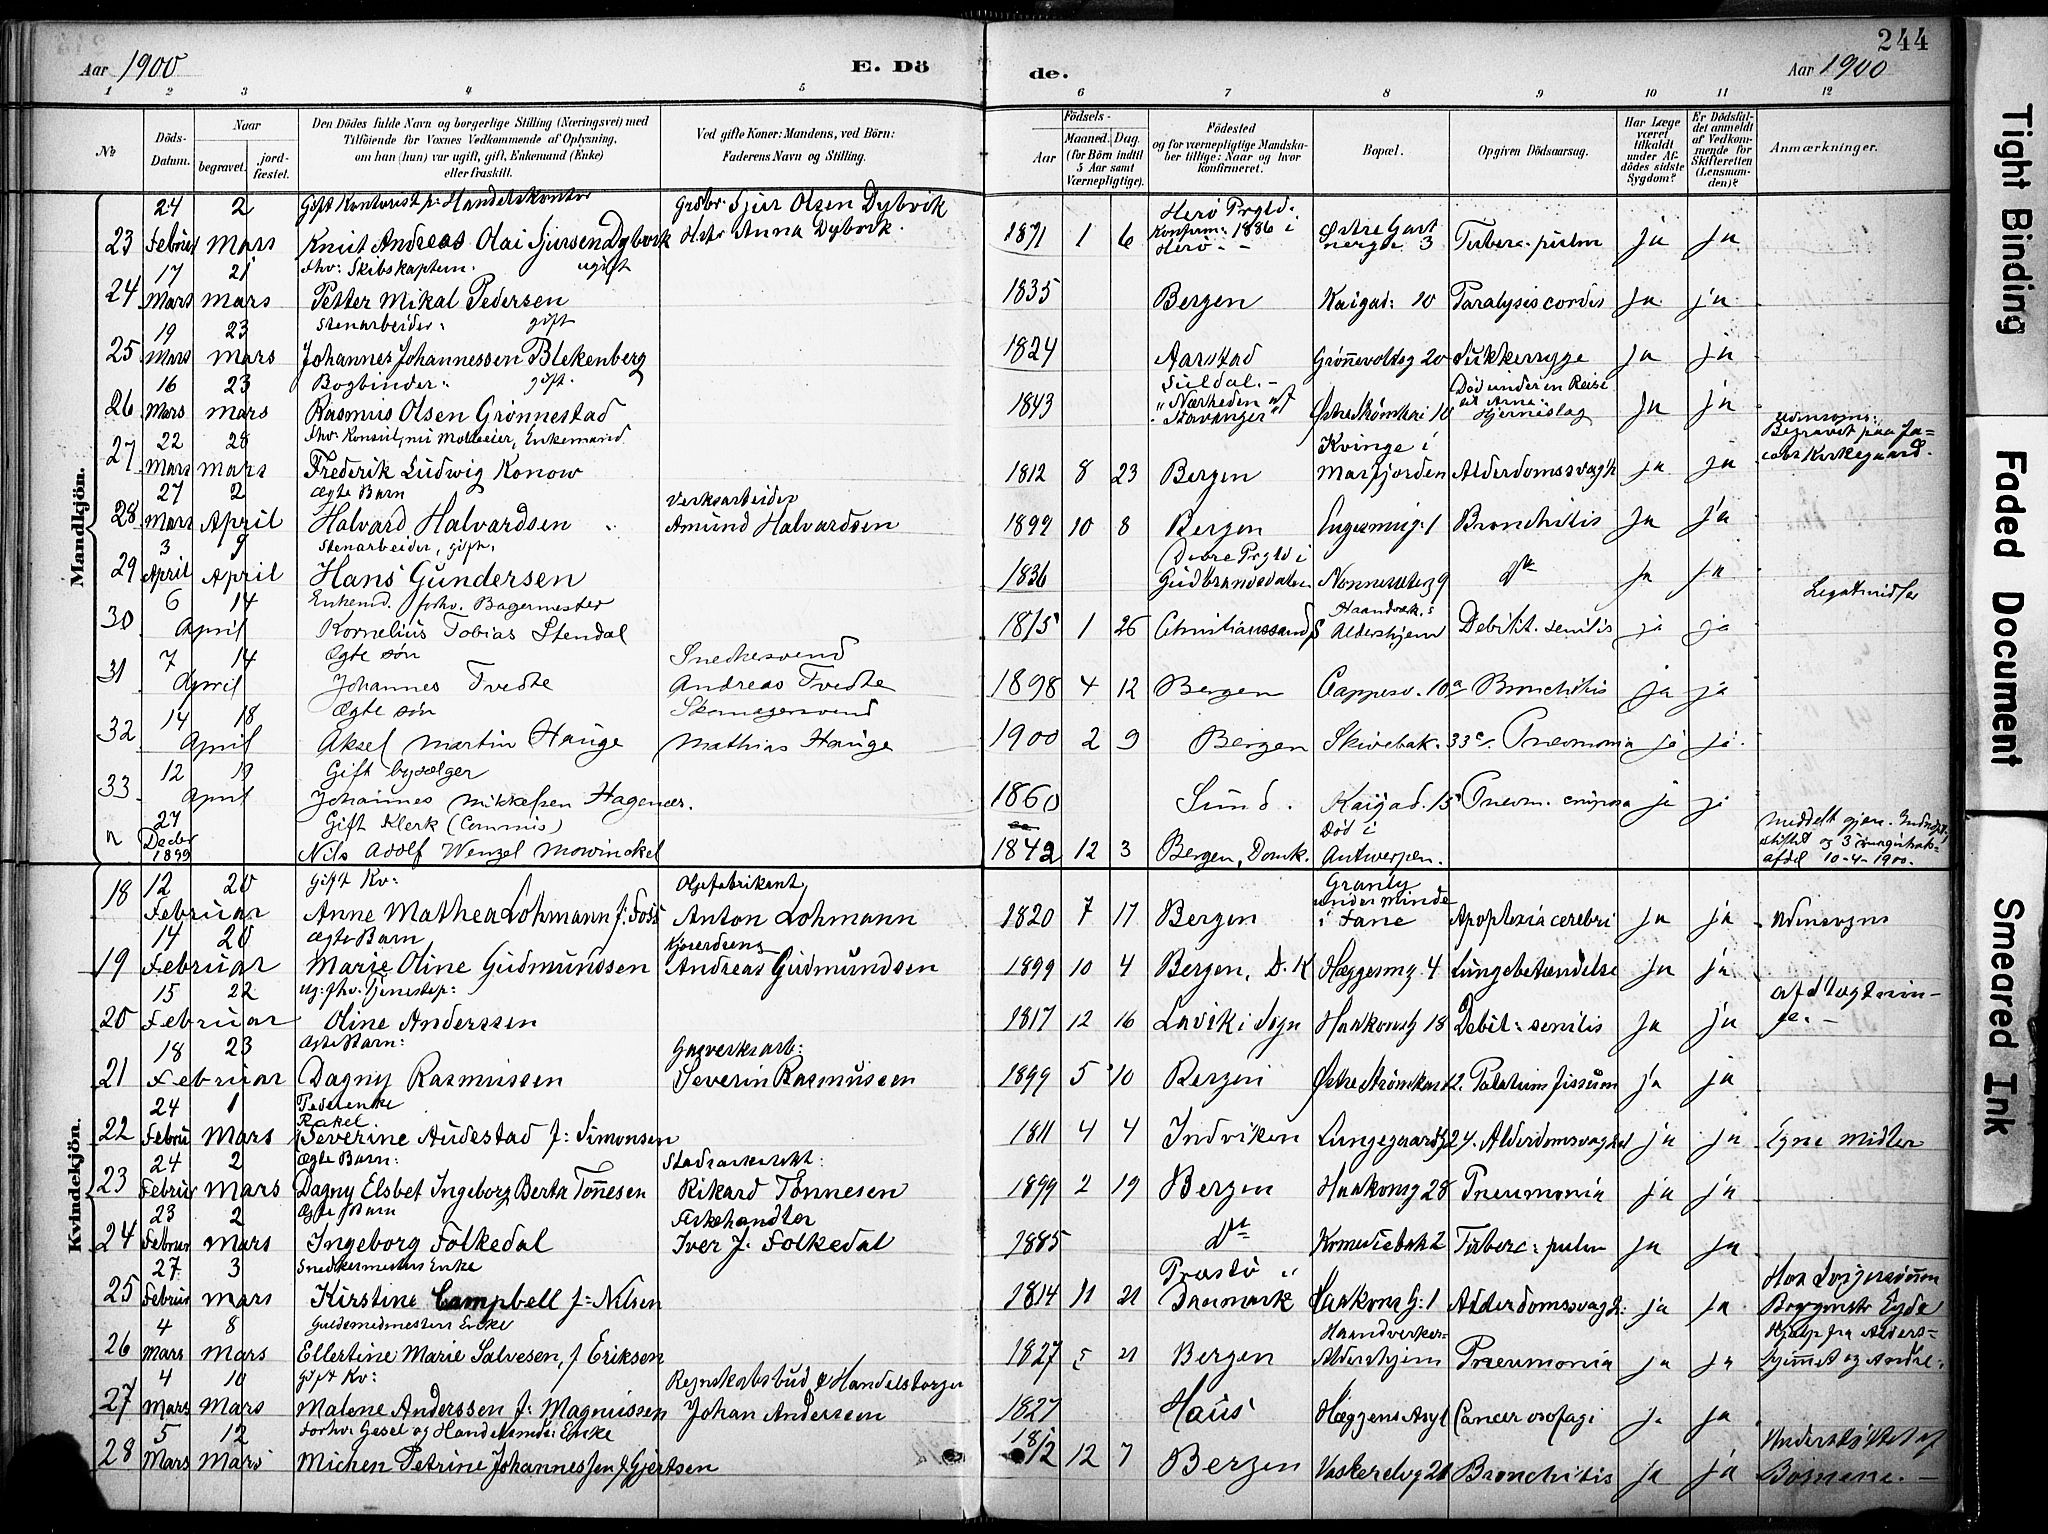 244
Aar 1900 E. Dö de. Aar 1900
1 2 3 4 5 6 7 8 9 10 11 12
№
Döds-Datum.
Naar
begravet.
jordfæstet.
Den Dödes fulde Navn og borgerlige Stilling (Næringsvei) med
Tilföiende for Voxnes Vedkommende af Oplysning,
om han (hun) var ugift, gift, Enkemand (Enke)
eller fraskilt.
Ved gifte Koner: Mandens, ved Börn:
Faderens Navn og Stilling.
Födsels-
Aar
Maaned. Dag.
(for Börn indtil
5 Aar samt
Værnepligtige).
Födested
og for værnepligtige Mandska-
ber tillige: Naar og hvor
konfirmeret.
Bopæl.
Opgiven Dödsaarsag.
Har Læge
været
tilkaldt
under Af-
dödes sidste
Sygdom?
Er Dödsfal-
det anmeldt
af Vedkom-
mende for
Skifteretten
(Lensman-
den)?
Anmærkninger.
Mandkjön.
24 2 Gift Kontorist p: Handelskontor Sjur Olsen Dybvik Herö Prgld.
23 Februar Mars Knut Andreas Olai Sjursen Dybvik Anna Dybvik. 1871 1 6 Konfirm: 1886 i Herö - Østre 3 Tuberc. pulm ja ja
17 21 fhv: Skibskaptein. ugift
24 Mars Mars Petter Mikal Pedersen 1835 Bergen Kaigad: 10 Paralysis cordis ja ja
19 23 Stenarbeider: gift
25 Mars Mars Johannes Johannessen Blekenberg 1824 Aarstad Grönnevoldsg 20 Sukkersyge ja ja
16 23 Bogbinder: gift. Suldal. - Död under en Reise
26 Mars Mars Rasmus Olsen Grönnestad 1843 "Nærheden af Stavanger" Østre Strömkai 10 til Arne: Hjerneslag ja ja
22 28 fhv: Konsul, nu Enkemand. Kvinge i Udensogns: Begravet paa Ja-
27 Mars Mars Frederik Ludwig Konow 1812 8 23 Bergen Masfjorden Alderdomssvagh ja ja cobs Kirkegaard.
27 2 Ægte Barn Verksarbeider
28 Mars April Halvard Halvardsen Amund Halvardsen 1899 10 8 Bergen 1 Bronchitis ja ja
3 9 Stenarbeider, gift. Dovre Prgld i
29 April April Hans Gundersen 1836 Gudbrandsdalen Nonneseterg 9 do ja ja
6 14 Enkemd. forhv. Bagermester Haandværk:s
30 April Kornelius Tobias Stendal 1815 1 26 Christianssand S Aldershjem Debilit. senilis ja ja
7 14 Ægte søn Snedkersvend
31 April Johannes Tvedte Andreas Tvedte 1898 4 12 Bergen Cappesv. 10a Bronchitis ja ja
14 18 Ægte søn Skomagersvend
32 April Aksel Martin Hauge Mathias Hauge 1900 2 9 Bergen Skivebak. 33c. Pneumonia ja ja
12 19 Gift bysælger
33 April Johannes Mikkelsen Hagenæs. 1860 Sund. Kaigad. 15 Pneum. cruposa ja ja
27 Gift Klerk (Commis) Död i
n Decbr 1899 Nils Adolf Wenzel Mowinckel 1842 12 3 Bergen, Domk. Antwerpen. 10-4-1900.
Kvindekjön.
12 20 Gift Kv: Oljefabrikant Granly
18 Februar Anne Mathea Lohmann f: Foss Anton Lohmann 1820 7 17 Bergen under Minde i Fane Apoplexia cerebri ja ja Udensogns
14 20 Ægte Barn
19 Februar Marie Oline Gudmundsen Andreas Gudmundsen 1899 10 4 Bergen, D. K Hæggesmg 4 Lungebetændelse ja ja
15 22 ug: fhv. Tjenestep:
20 Februar Oline Anderssen 1817 12 16 Lavik i Sogn Haakonsg 18 Debil: senilis ja ja
18 23 Ægte Barn: Gasverksarb:
21 Februar Dagny Rasmussen Severin Rasmussen 1899 5 10 Bergen Østre Strömkai 12. Palatum fissum ja ja
24 1
22 Februar Mars Rakel Severine Audestad f: Simonsen 1811 4 4 Indviken Lungegaardsg 24. Alderdomssvaghed ja ja Egne Midler
24 2 Ægte Barn:
23 Februar Mars Dagny Elsbet Ingeborg Berta Tönnesen Rikard Tönnesen 1899 2 19 Bergen Haakonsg 28 Pneumonia ja ja
23 2 Ægte Barn Fiskehandler
24 Februar Mars Ingeborg Folkedal Iver J. Folkedal 1885 do Komediebak 2 Tuberc: pulm ja ja
27 3 Snedkermesters Enke Præstö i
25 Februar Mars Kirstine Campbell f: Nilsen 1814 11 21 Danmark Haakons G: 1 Alderdomssvagh: ja ja Hos Svigersönnen Eyde
4 8 Guldsmedmesters Enke Haandverker-
26 Mars Mars Ellertine Marie Salvesen, f Eriksen 1827 5 21 Bergen Aldershjem Pneumonia ja ja Hjælp fra Alders-hjemmet og Andre.
4 10 Gift Kv: Regnskabsbud & Handelsborger
27 Mars Mars Malene Anderssen f: Magnussen Johan Anderssen 1827 Haus Hæggens Asyl Cancer osofagi ja ja
5 12 Forhv: Gesel og Enke
28 Mars Mars Michen Petrine Johannessen f. Gjertsen 1812 12 7 Bergen Vaskerelvg 21 Bronchitis ja ja Understöttet af Börnene.
Tight Binding
Faded Document
Smeared Ink